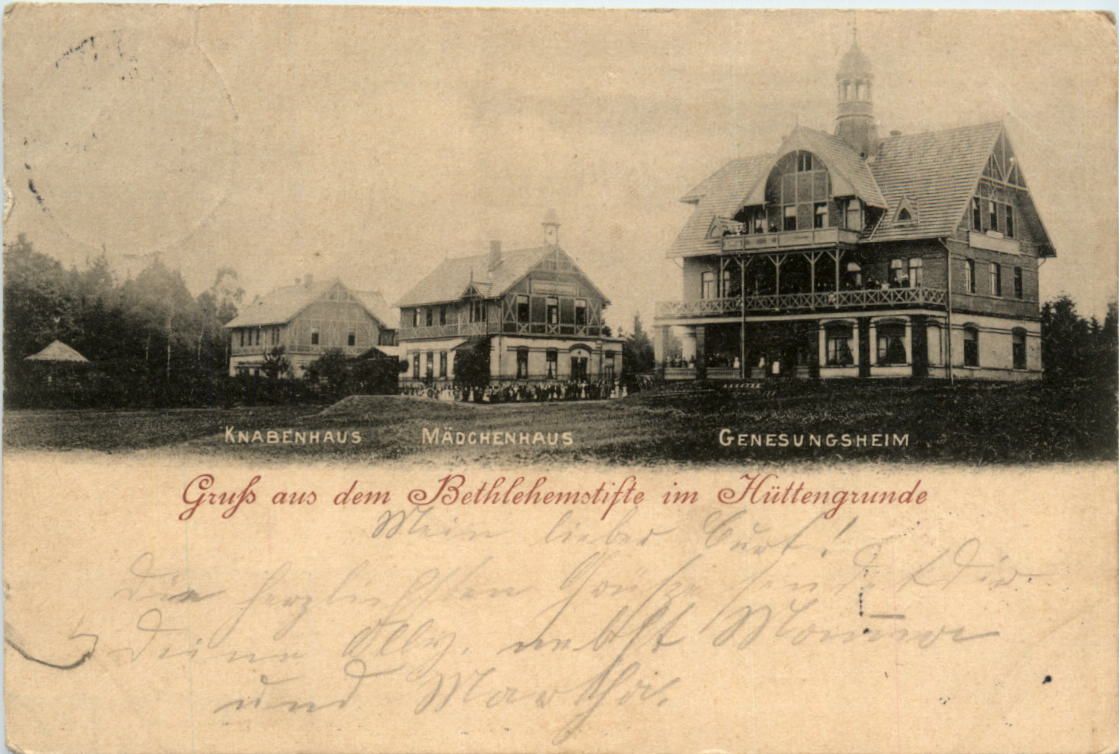 KNABENHAUS MÄDCHENHAUS GENESUNGSHEIM
Gruß aus dem Bethlehemstifte im Hüttengrunde
Mein lieber Curt!
Die herzlichsten Grüße sendet Dir
Deine Elly, nebst Mama
und Martha.